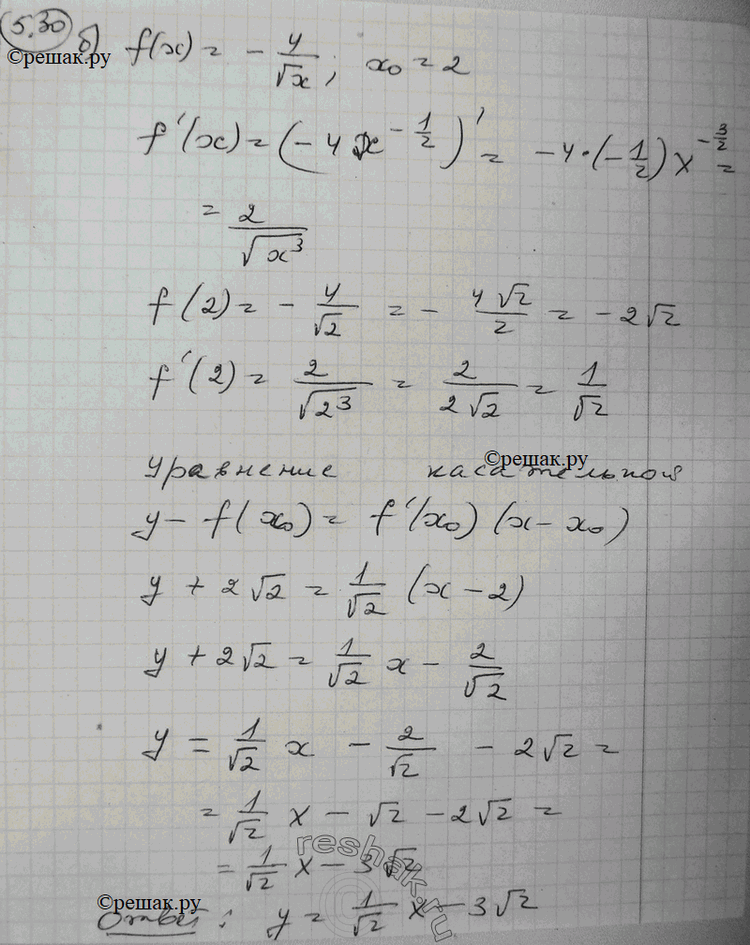 5.30 б) f(x) = - 4/√x ; x₀ = 2
©решак.ру
f'(x) = (-4x^(-1/2))' = -4·(-1/2)x^(-3/2) =
= 2/√x³
f(2) = - 4/√2 = - 4√2/2 = -2√2
f'(2) = 2/√2³ = 2/2√2 = 1/√2
©решак.ру
Уравнение касательной
y - f(x₀) = f'(x₀)(x - x₀)
y + 2√2 = 1/√2 (x - 2)
y + 2√2 = 1/√2 x - 2/√2
y = 1/√2 x - 2/√2 - 2√2 =
= 1/√2 x - √2 - 2√2 =
= 1/√2 x - 3√2
reshak.ru
©решак.ру
Ответ: y = 1/√2 x - 3√2